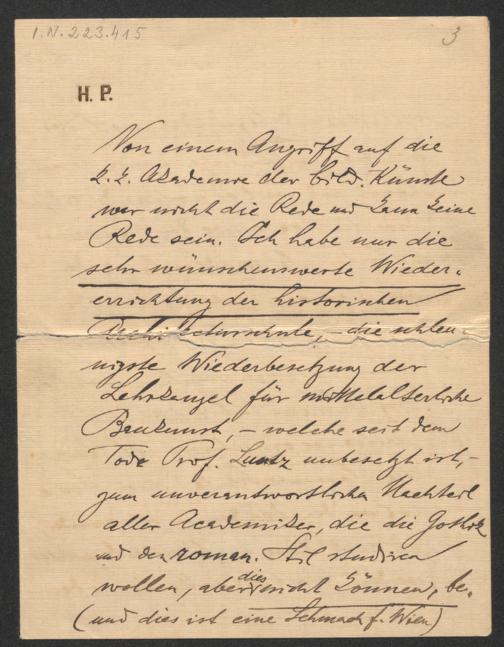 I.N. 223.415
3
H. P.
Von einem Angriff auf die
k. k. Academie der bild. Künste
war nicht die Rede und kann keine
Rede sein. Ich habe nur die
sehr wünschenswerte Wieder-
errichtung der historischen
Architecturschule, – die schleu-
nigste Wiederbesetzung der
Lehrkanzel für mittelalterliche
Baukunst, – welche seit dem
Tode Prof. Luntz unbesetzt ist, –
zum unverantwortlichen Nachteil
aller Academiker, die die Gothik
und den roman. Stil studiren
wollen, aber dies nicht können, be-
(und dies ist eine Schmach f. Wien)